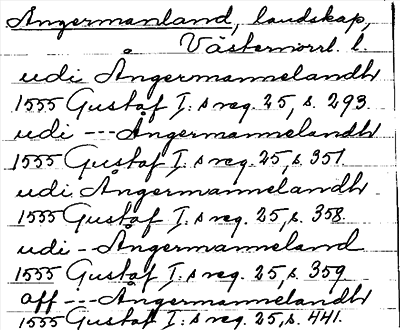 Ångermanland, landskap,
Västernorrl. l.
udi Ångermannelandh
1555 Gustaf I:s reg. 25, s. 293.
udi --- Ångermannelandh
1555 Gustaf I:s reg. 25, s. 351
udi Ångermannelandh
1555 Gustaf I:s reg. 25, s. 358.
udi - Ångermanneland
1555 Gustaf I:s reg. 25, s. 359
aff --- Ångermannelandh
1555 Gustaf I:s reg. 25, s. 441.